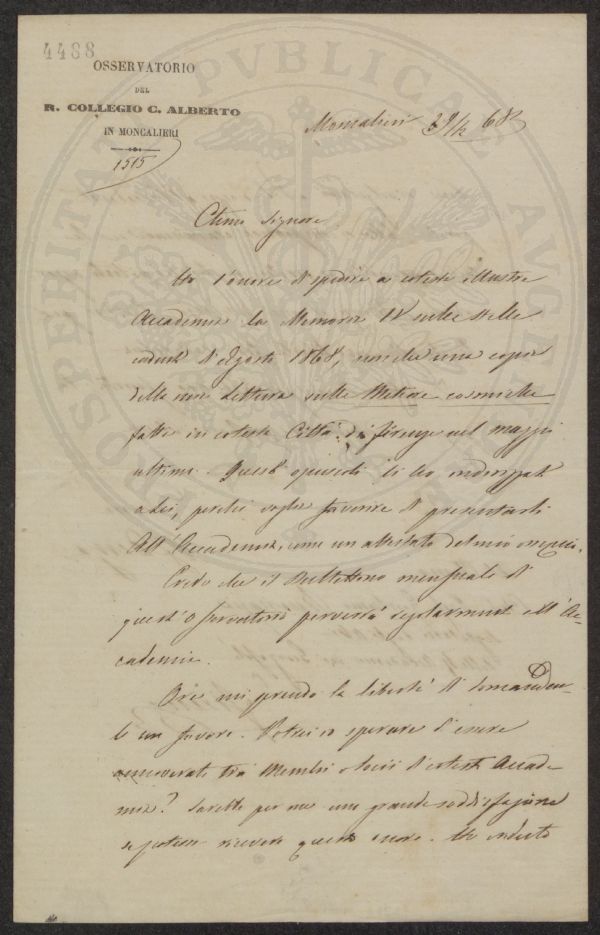 4488
OSSERVATORIO
DEL
R. COLLEGIO C. ALBERTO
IN MONCALIERI
1515
Moncalieri 68
Signore
Ho l'onore di spedire a cotesta illustre
Accademia la Memoria sulle stelle
cadenti d'Agosto 1868, nonché una copia
della mia Lettura sulle Meteore cosmiche
fatta in cotesta Città di Firenze nel maggio
ultimo. Questi opuscoli li ho indirizzati
a Lei, perché voglia favorire di presentarli
All'Accademia, come un attestato del mio ossequio.
Credo che il Bullettino mensuale di
quest'Osservatorio perverrà regolarmente all'Ac-
cademia.
Ora mi prendo la libertà di domandar-
le un favore. Potrei io sperare d'essere
annoverato tra Membri o Socii di cotesta Accade-
mia? Sarebbe per me una grande soddisfazione
se potessi ricevere questo onore. Ho
PVBLICAE
PROSPERITATI
AVGENDAE